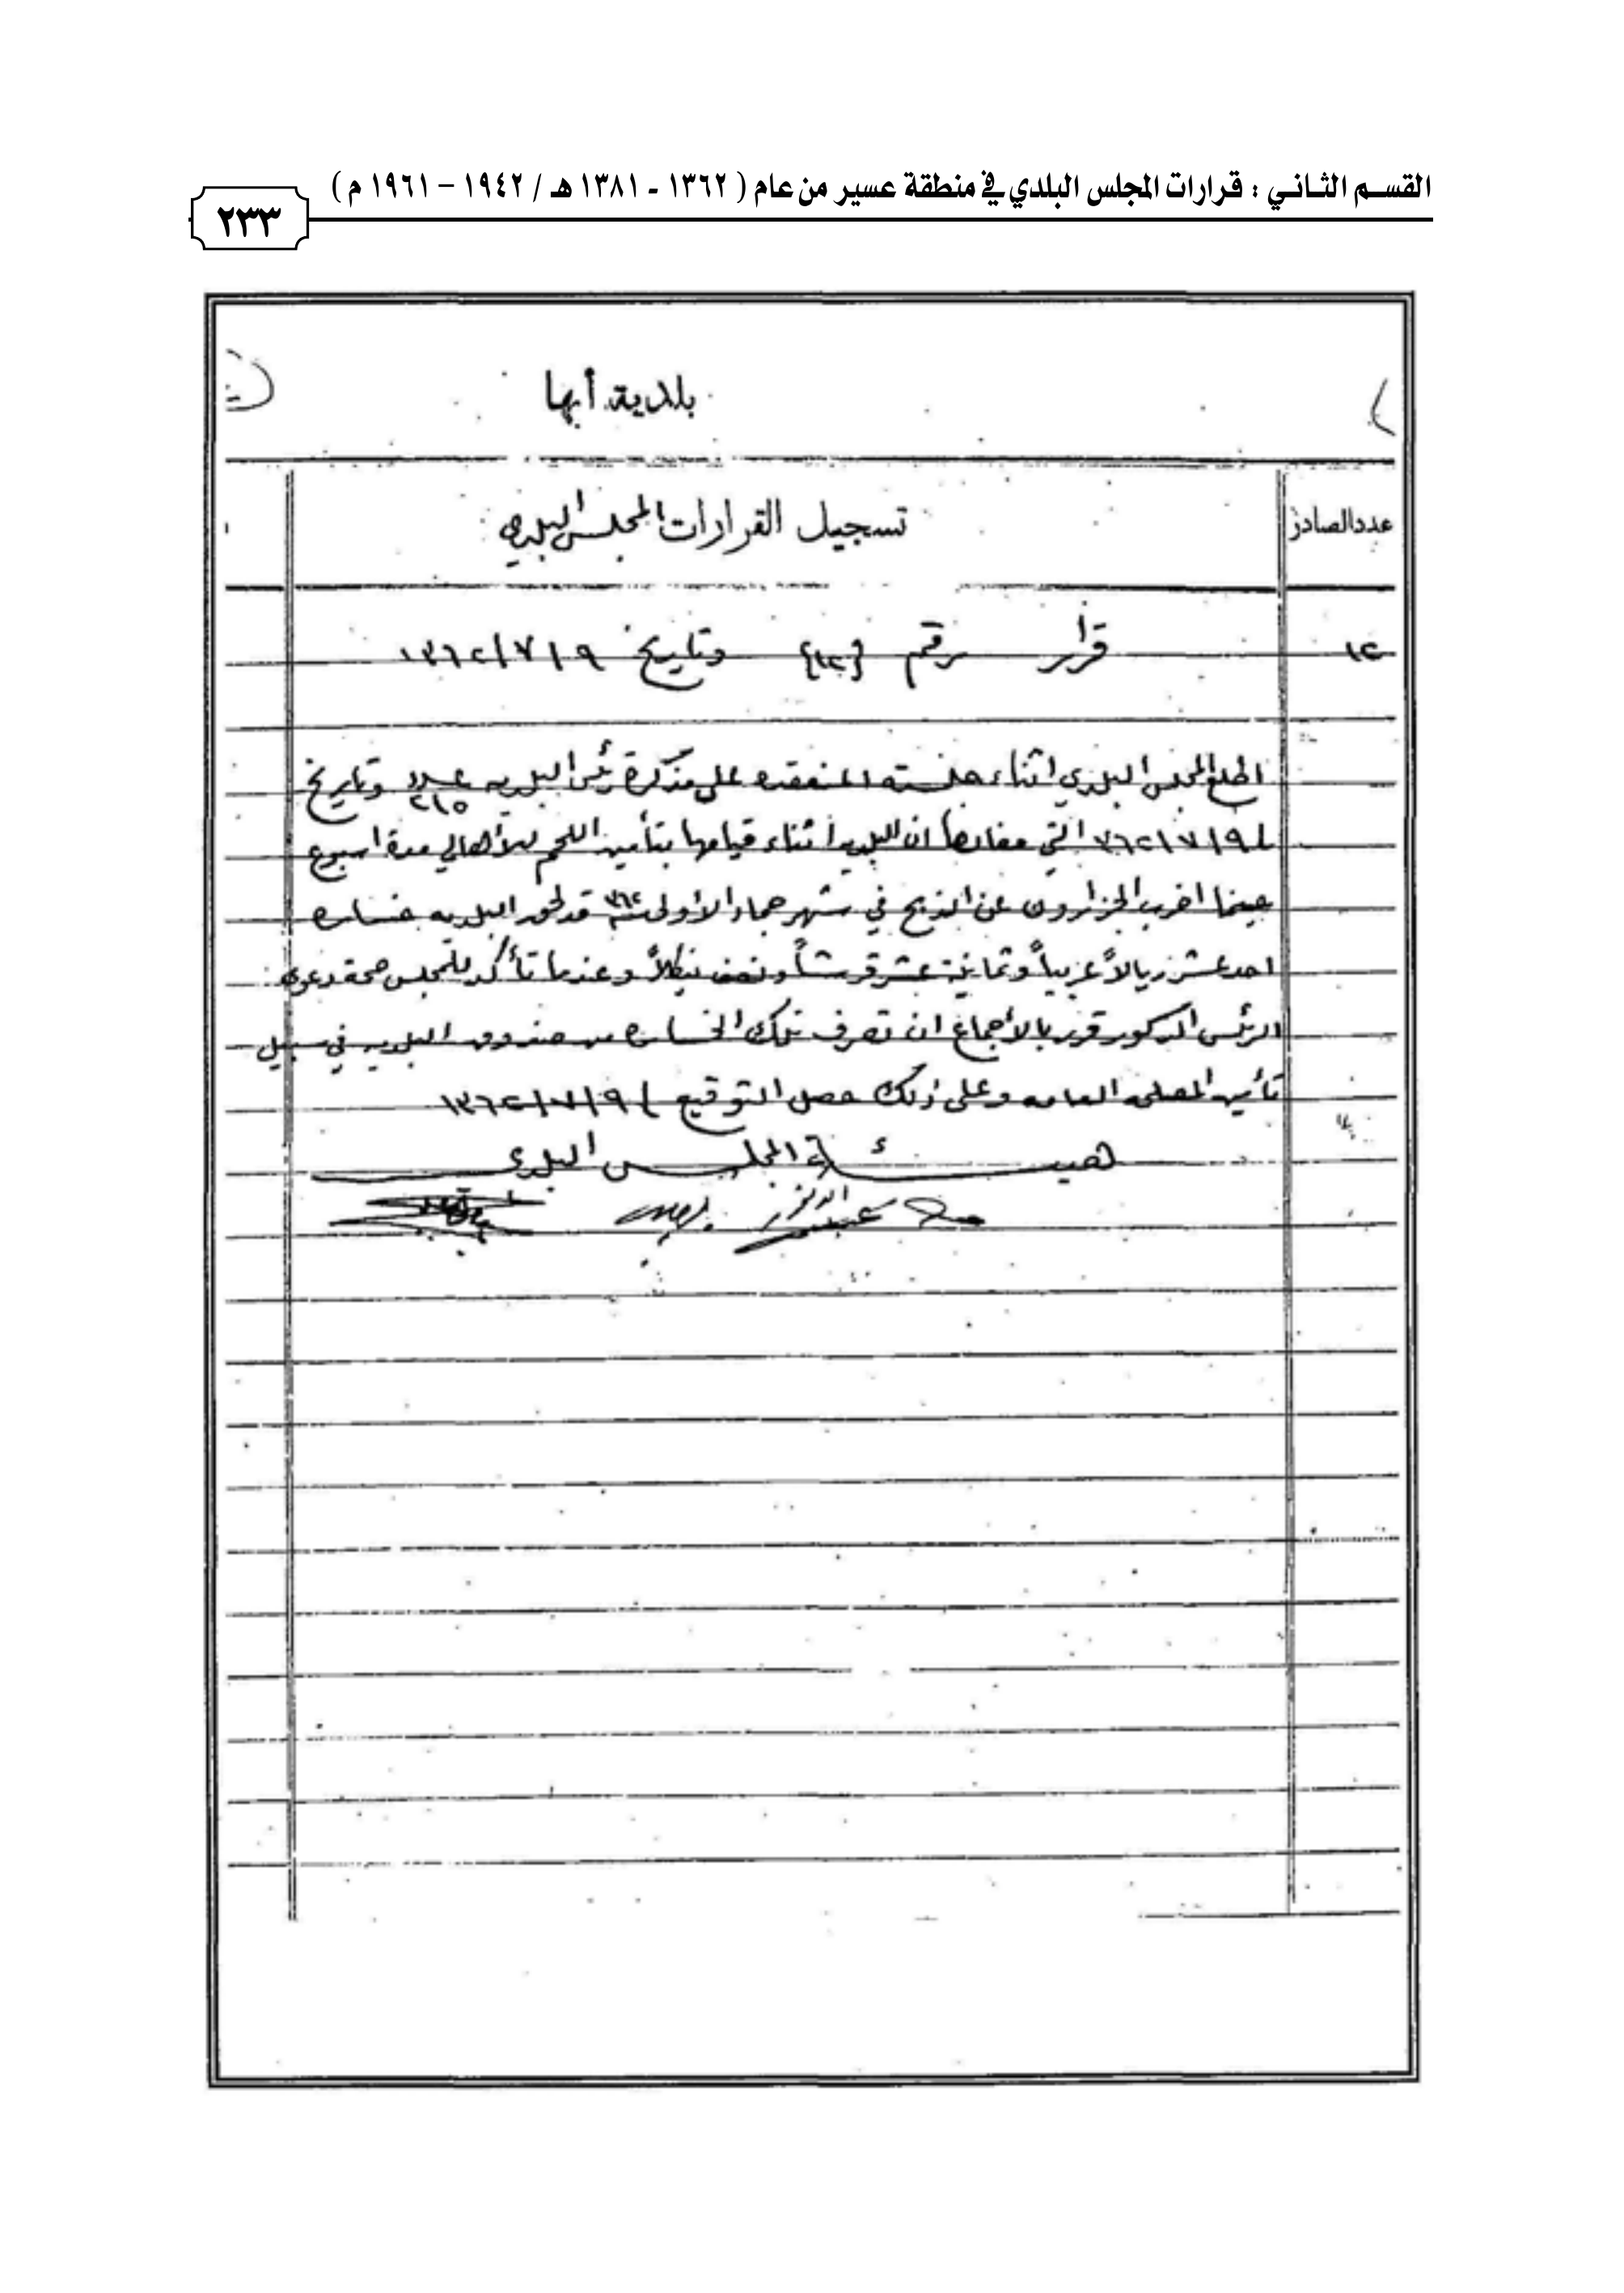 القسم الثاني : قرارات المجلس البلدي في منطقة عسير من عام ( ١٣٦٢ - ١٣٨١ هـ / ١٩٤٢ – ١٩٦١ م )
٢٣٣
بلدية أبها
عدد الصادر
تسجيل القرارات المجلس البلدي
١٢
قرار رقم {١٢} وتاريخ ١٣٦٢/٧/٩
اطلع المجلس البلدي اثناء جلسته المنعقده على مذكرة رئس البلديه عدد ٢١٥ وتاريخ
٣٦٢/٧/٩ التي مفادها ان البلديه أثناء قيامها بتأمين اللحم للأهالي مدة اسبوع
حينما اضرب الجزارون عن الذبح في شهر جماد الأولى ٣٦٢ قد لحق البلديه خساره
احد عشر ريالاً عربياً وثمانية عشر قرشاً ونصف نيكلاً وعندما تأكد للمجلس صحة دعوى
الرئس المذكور قرر بالأجماع ان تصرف تلك الخساره من صندوق البلديه في سبيل
تأمين المصلحه العامه وعلى ذلك حصل التوقيع ١٣٦٢/٧/٩
هيئة المجلس البلدي